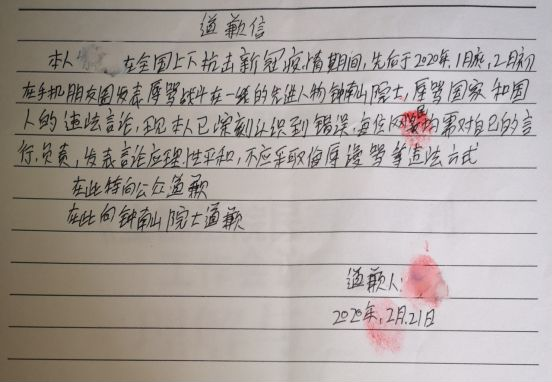 道歉信
本人 在全国上下抗击新冠疫情期间,先后于2020年,1月底,2月初
在手机朋友圈发表辱骂战斗在一线的先进人物钟南山院士,辱骂国家和国
人的违法言论,现本人已深刻认识到错误,每位 均需对自己的言
行,负责,发表言论应理性平和,不应采取侮辱谩骂等违法方式
在此特向公众道歉
在此向钟南山院士道歉
道歉人:
2020年,2月,21日